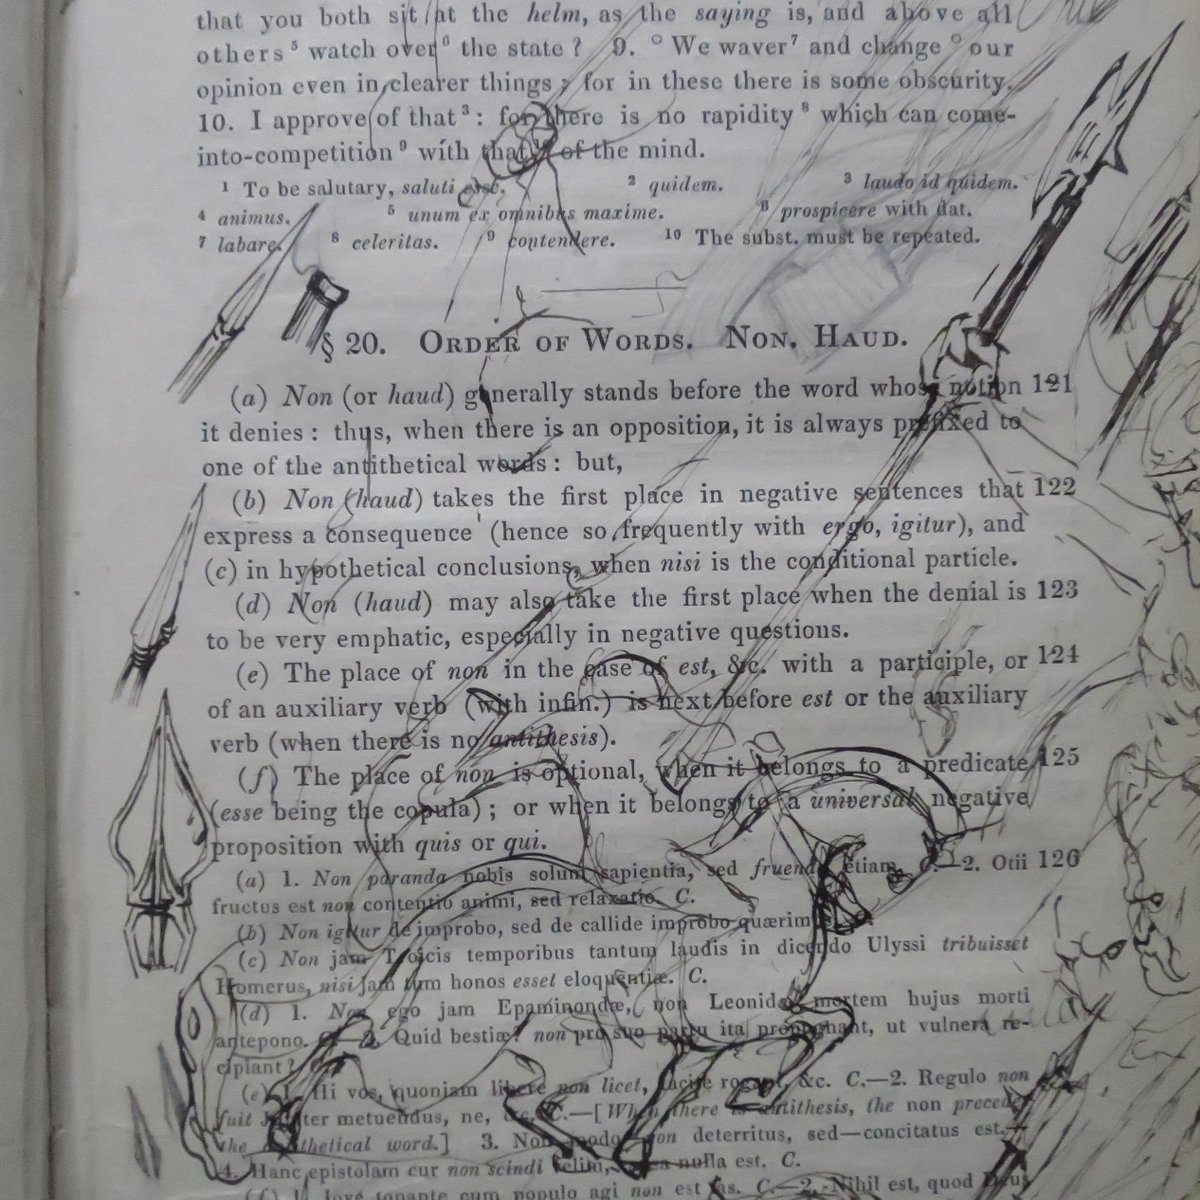 that you both sit at the helm, as the saying is, and above all
others 5 watch over 6 the state ? 9. ° We waver 7 and change ° our
opinion even in clearer things ; for in these there is some obscurity.
10. I approve of that 3 : for there is no rapidity 8 which can come-
into-competition 9 with that 10 of the mind.
1 To be salutary, saluti esse. 2 quidem. 3 laudo id quidem.
4 animus. 5 unum ex omnibus maxime. 6 prospicere with dat.
7 labare. 8 celeritas. 9 contendere. 10 The subst. must be repeated.
§ 20. ORDER OF WORDS. NON, HAUD.
(a) Non (or haud) generally stands before the word whose notion 121
it denies : thus, when there is an opposition, it is always prefixed to
one of the antithetical words : but,
(b) Non (haud) takes the first place in negative sentences that 122
express a consequence (hence so frequently with ergo, igitur), and
(c) in hypothetical conclusions, when nisi is the conditional particle.
(d) Non (haud) may also take the first place when the denial is 123
to be very emphatic, especially in negative questions.
(e) The place of non in the case of est, &c. with a participle, or 124
of an auxiliary verb (with infin.) is next before est or the auxiliary
verb (when there is no antithesis).
(f) The place of non is optional, when it belongs to a predicate 125
(esse being the copula) ; or when it belongs to a universal negative
proposition with quis or qui.
(a) 1. Non paranda nobis solum sapientia, sed fruenda etiam. C.—2. Otii 126
fructus est non contentio animi, sed relaxatio. C.
(b) Non igitur de improbo, sed de callide improbo quærimus.
(c) Non jam Troicis temporibus tantum laudis in dicendo Ulyssi tribuisset
Homerus, nisi jam tum honos esset eloquentiæ. C.
(d) 1. Non ego jam Epaminondæ, non Leonidæ mortem hujus morti
antepono. C. 2. Quid bestiæ? non pro suo partu ita propugnant, ut vulnera re-
cipiant ?
(e) 1. Hi vos, quoniam libere non licet, tacite rogant, &c. C.—2. Regulo non
fuit Jupiter metuendus, ne, &c. C.—[When there is antithesis, the non precedes
the antithetical word.] 3. Non modo non deterritus, sed—concitatus est.—
4. Hanc epistolam cur non scindi velim, causa nulla est. C.
(f) 1. Jove tonante cum populo agi non est fas. C.—2. Nihil est, quod Deus